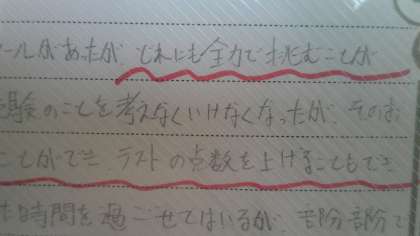 ールがあったが、どれにも全力で挑むことが
験のことを考えなくいけなくなったが、そのお
ことができ テストの点数を上げることもでき
時間を過ごせてはいるが、部分部分で